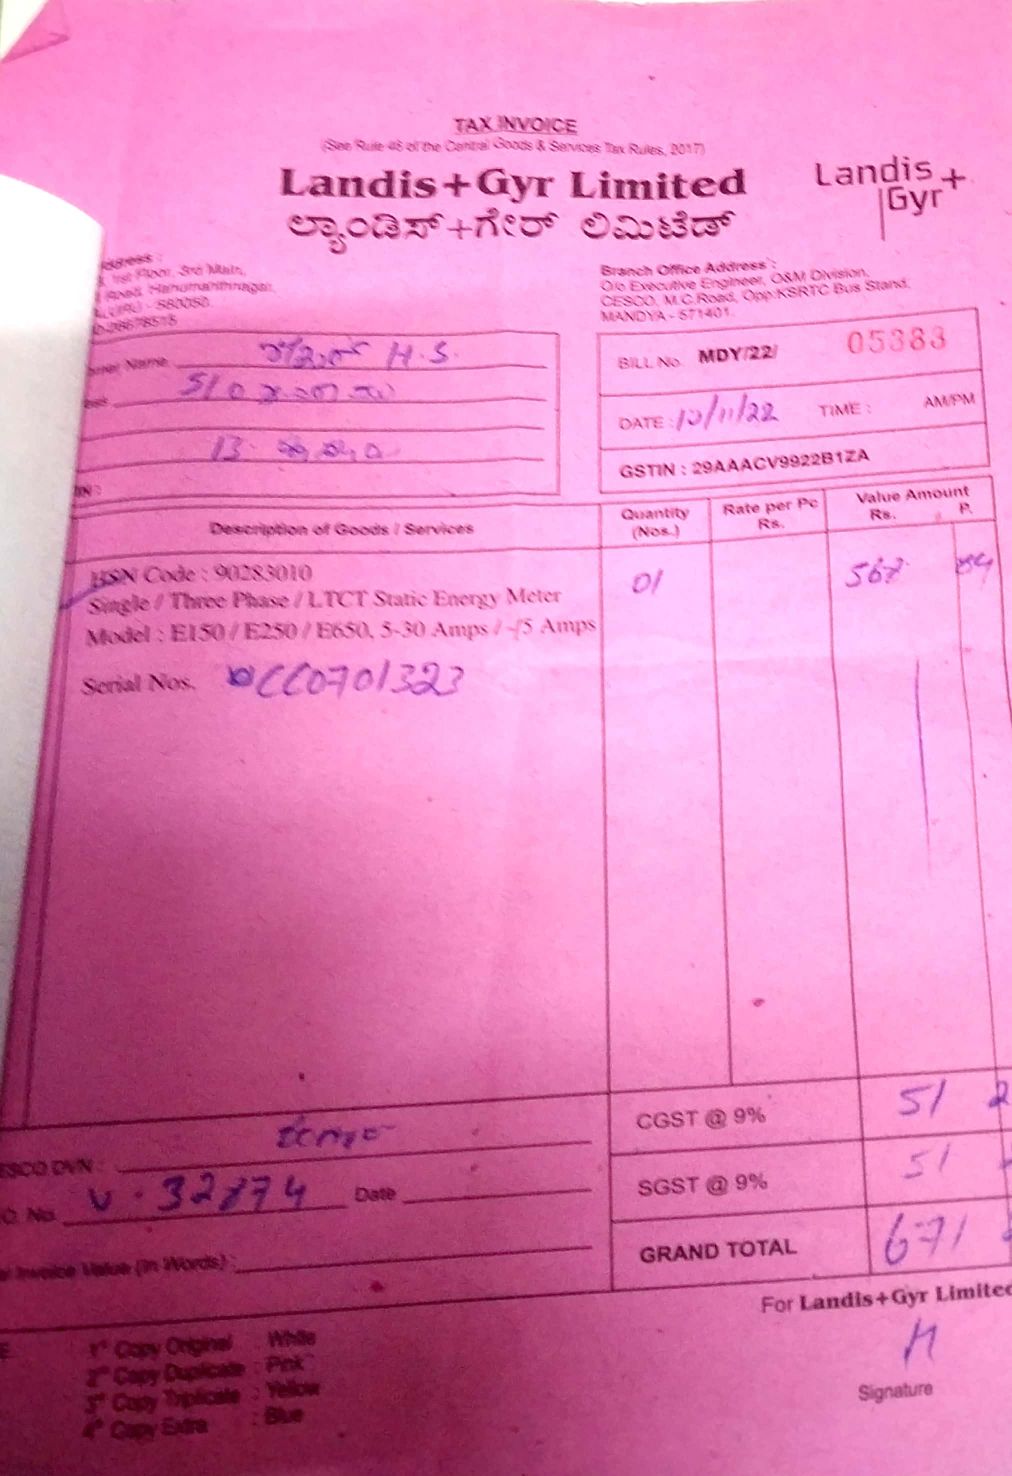 TAX INVOICE
(See Rule 46 of the Central Goods & Services Tax Rules, 2017)
Landis+Gyr Limited
ಲ್ಯಾಂಡಿಸ್+ಗೇರ್ ಲಿಮಿಟೆಡ್
Landis+
Gyr
1st Floor, 3rd Main,
Hanumanthnagar,
- 560050
Branch Office Address :
O/o Executive Engineer, O&M Division,
CESCO, M.C.Road, Opp.KSRTC Bus Stand,
MANDYA - 571401.
Name H.S.
S/o
13
BILL No. MDY/22/ 05383
DATE : /11/22 TIME : AM/PM
GSTIN : 29AAACV9922B1ZA
Description of Goods / Services
Quantity (Nos.)
Rate per Pc Rs.
Value Amount Rs. P.
HSN Code : 90283010 01 567
Single / Three Phase / LTCT Static Energy Meter
Model : E150 / E250 / E650, 5-30 Amps / -/5 Amps
Serial Nos. CC0701323
CGST @ 9% 51
SGST @ 9% 51
GRAND TOTAL 671
DVN :
No. Date
Invoice Value (In Words) :
For Landis+Gyr Limited
Signature
1st Copy Original : White
2nd Copy Duplicate : Pink
3rd Copy Triplicate : Yellow
4th Copy Extra : Blue